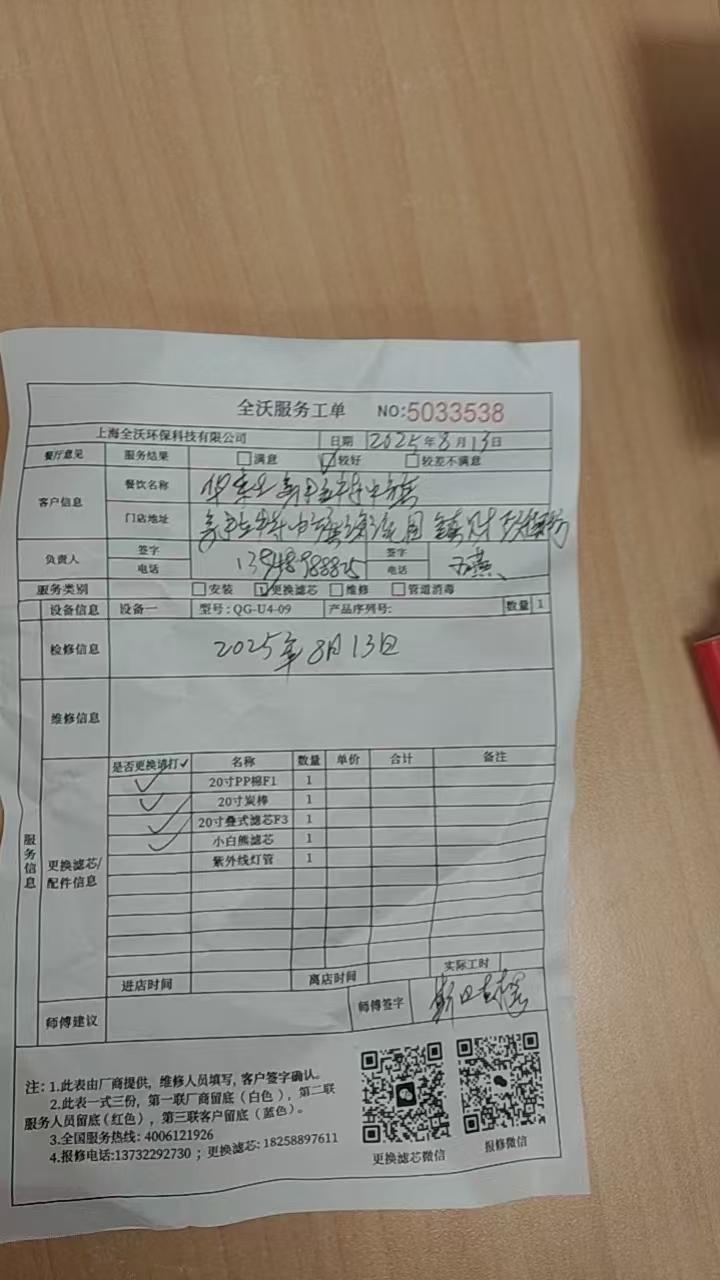 全沃服务工单 NO:5033538
上海全沃环保科技有限公司 日期 2025年8月13日
餐厅意见 服务结果 满意 较好 较差不满意
客户信息 餐饮名称
门店地址
负责人 签字 电话 签字 电话
服务类别 安装 更换滤芯 维修 管道消毒
设备信息 设备一 型号:QG-U4-09 产品序列号: 数量 1
检修信息 2025年8月13日
维修信息
服务信息
更换滤芯/配件信息
是否更换请打✓ 名称 数量 单价 合计 备注
✓ 20寸PP棉F1 1
✓ 20寸炭棒 1
✓ 20寸叠式滤芯F3 1
✓ 小白熊滤芯 1
紫外线灯管 1
进店时间 离店时间 实际工时
师傅建议 师傅签字
注: 1.此表由厂商提供, 维修人员填写, 客户签字确认。
2.此表一式三份, 第一联厂商留底 (白色) , 第二联
服务人员留底 (红色) , 第三联客户留底 (蓝色) 。
3.全国服务热线: 4006121926
4.报修电话:13732292730 ; 更换滤芯: 18258897611
更换滤芯微信 报修微信